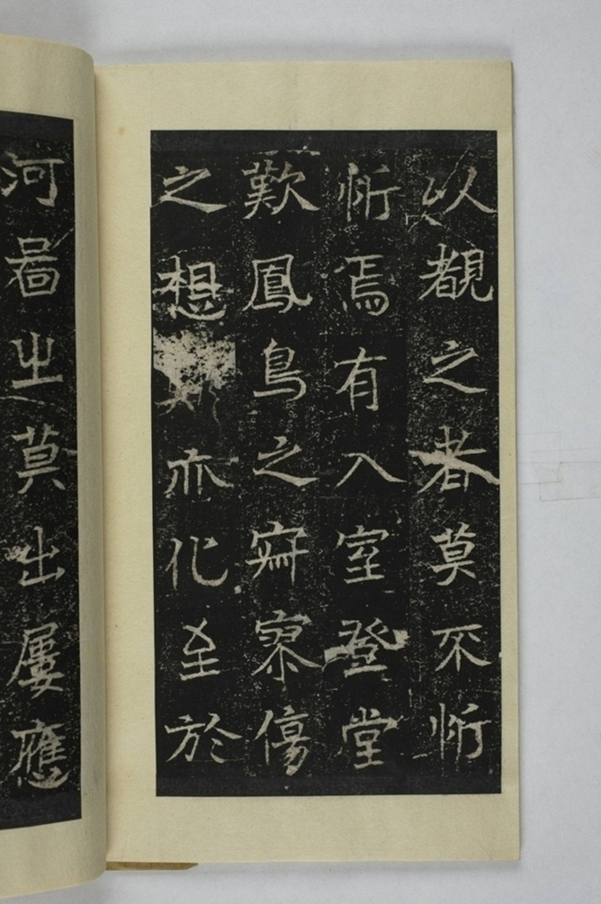 以覩之者莫不忻
忻焉有入室登堂
歎鳳鳥之寂寥傷
之想亦化至於
河啚㞢莫出屢應